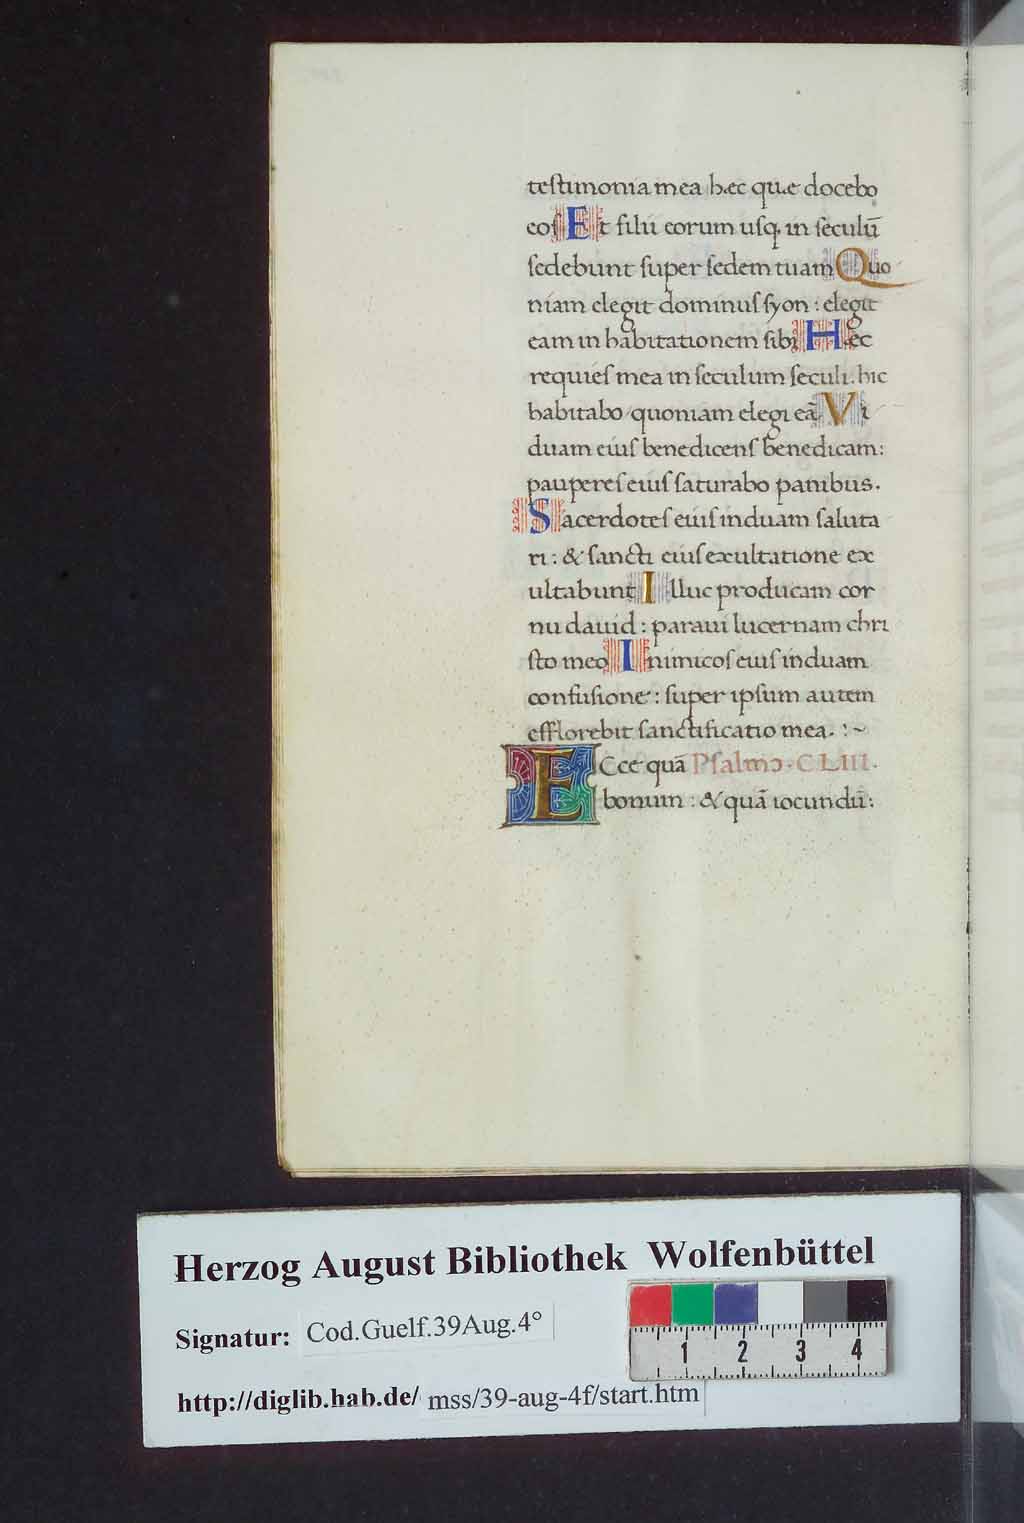 testimonia mea hęc quę docebo
eos Et filii eorum usq; in seculū
sedebunt super sedem tuam Quo
niam elegit dominus syon : elegit
eam in habitationem sibi Hęc
requies mea in seculum seculi. hic
habitabo quoniam elegi eā Vi
duam eius benedicens benedicam:
pauperes eius saturabo panibus.
Sacerdotes eius induam saluta
ri: & sancti eius exultatione ex
ultabunt Illuc producam cor
nu dauid : paraui lucernam chri
sto meo Inimicos eius induam
confusione: super ipsum autem
efflorebit sanctificatio mea. :~
ECce quā Psalmo. CLIII.
bonum : & quā iocundū:
Herzog August Bibliothek Wolfenbüttel
Signatur: Cod.Guelf.39Aug.4°
http://diglib.hab.de/ mss/39-aug-4f/start.htm
1 2 3 4